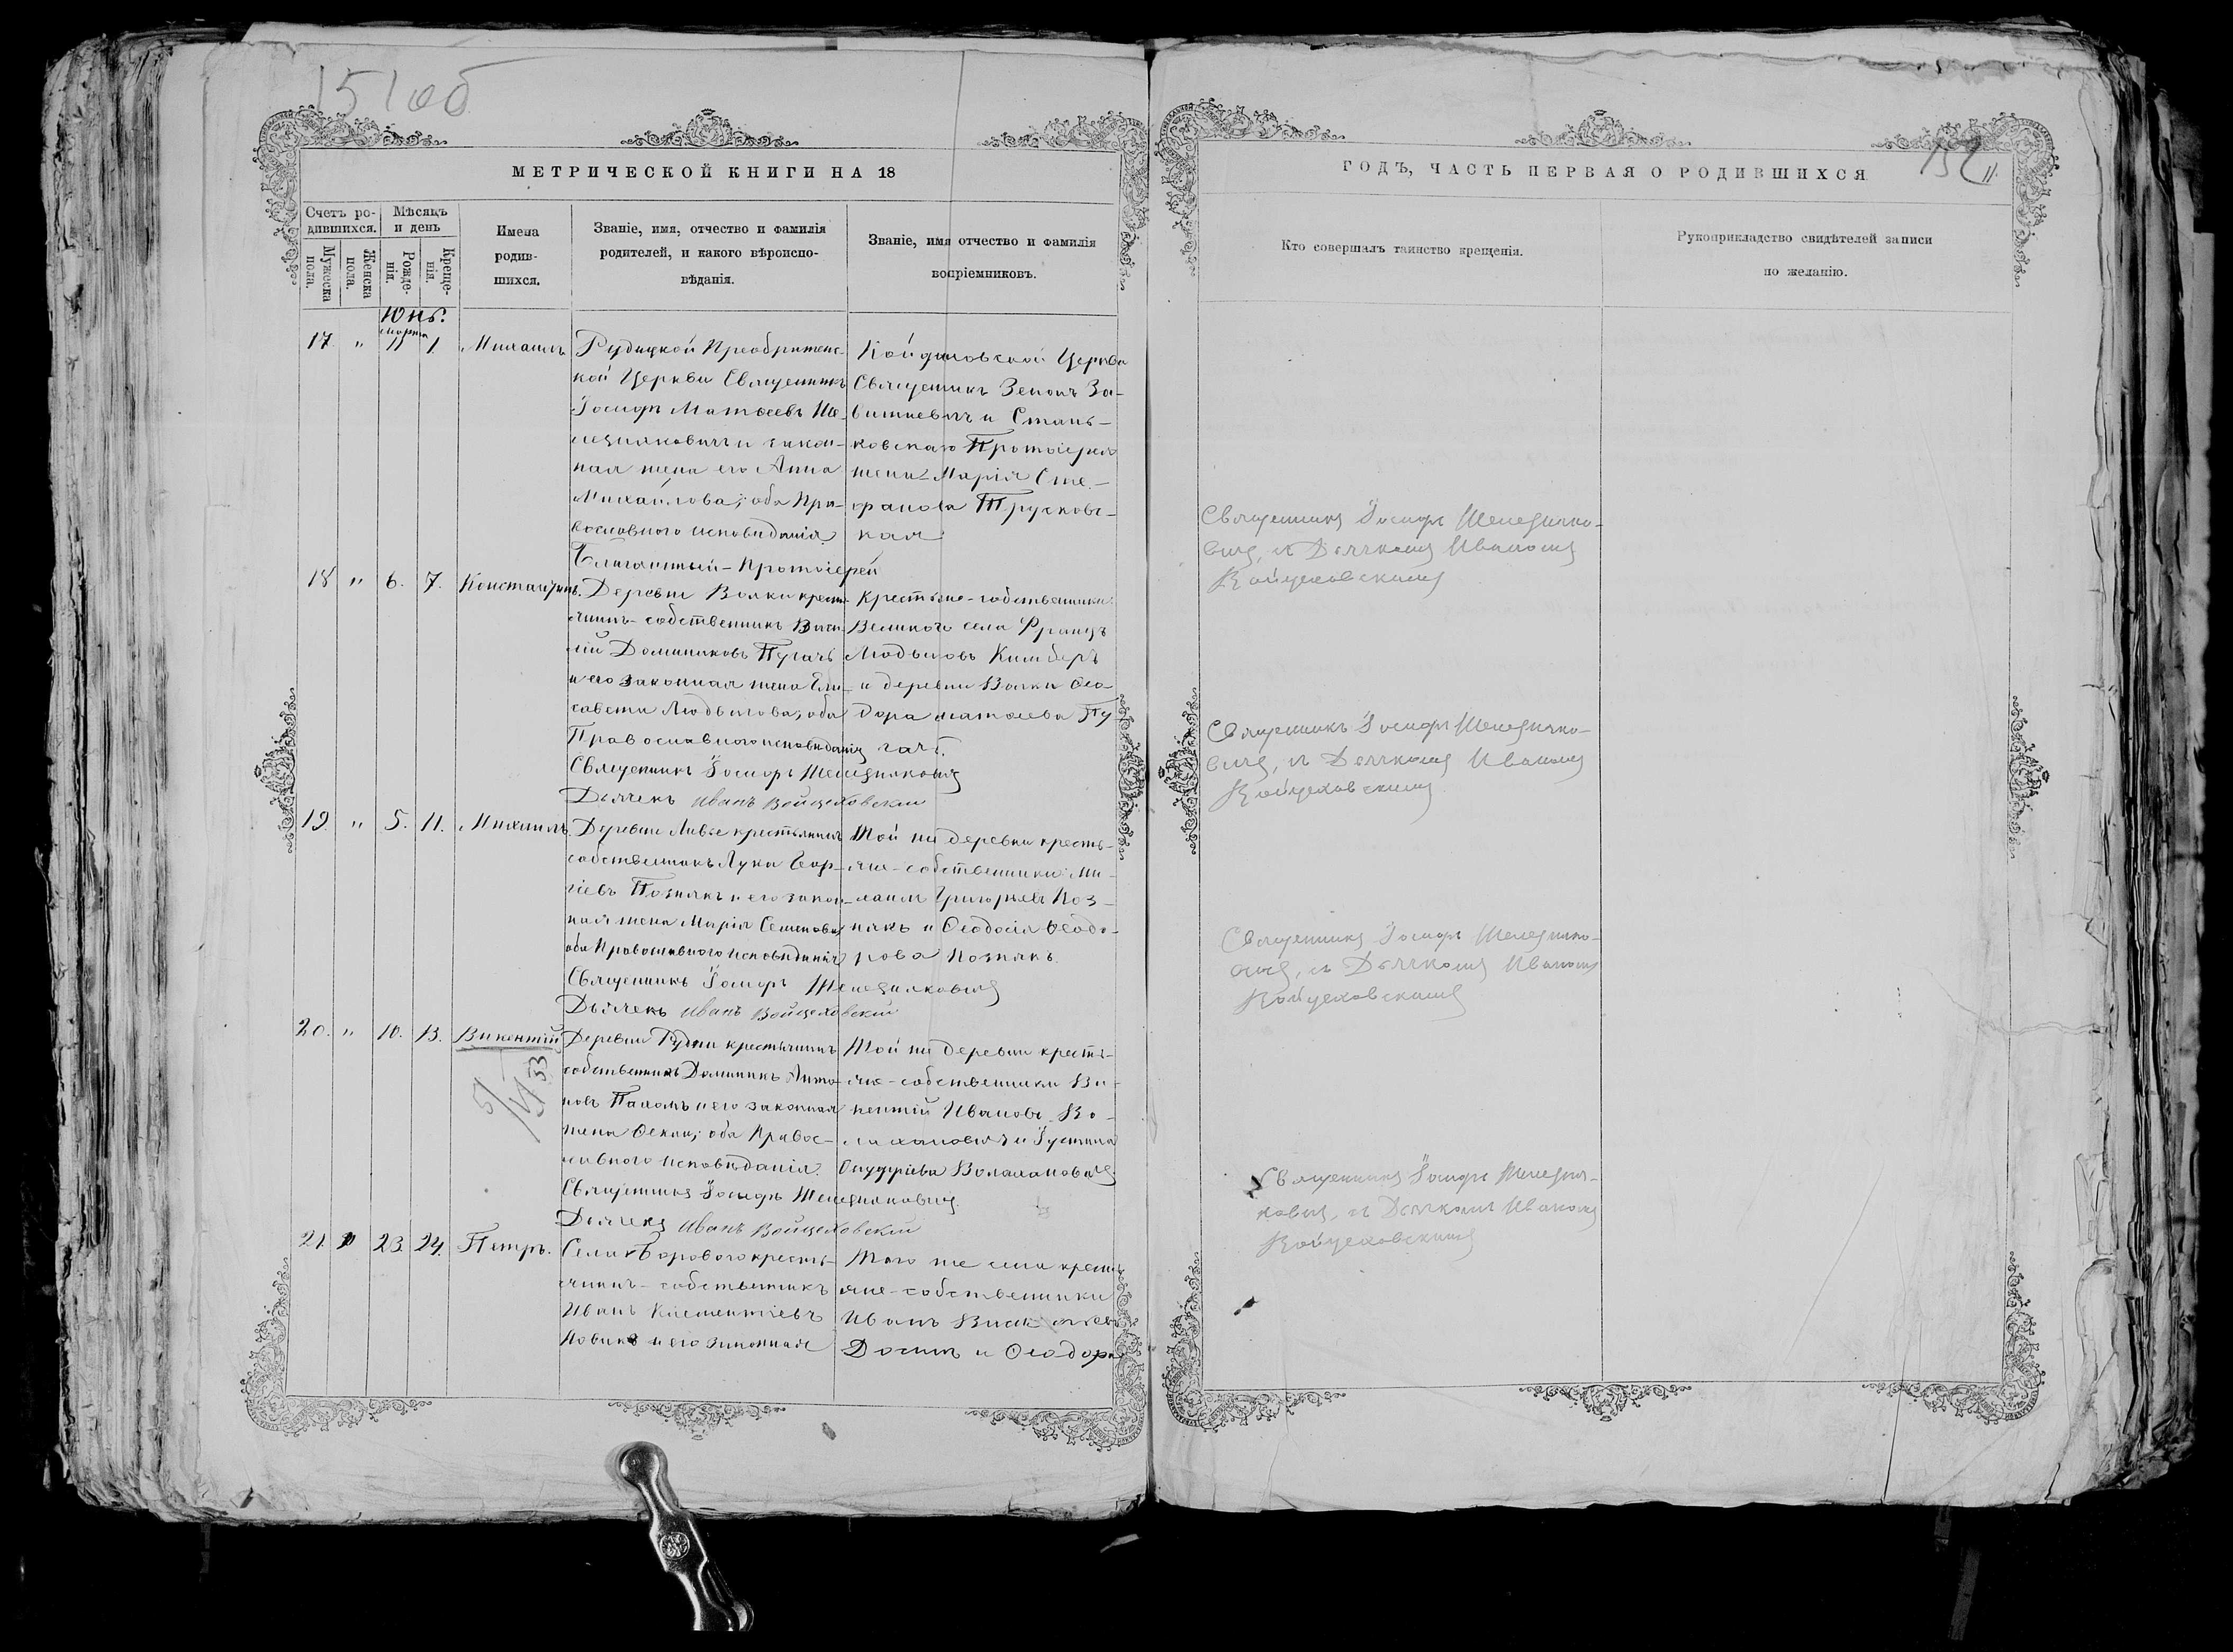 151 об
МЕТРИЧЕСКОЙ КНИГИ НА 18
Счетъ ро-
дившихся.
Мужеска
пола.
Женска
пола.
Мѣсяцъ
и день
Рожде-
нія.
Креще-
нія.
Имена
родив-
шихся.
Званіе, имя, отчество и фамилія
родителей, и какого вѣроиспо-
вѣданія.
Званіе, имя отчество и фамилія
воспріемниковъ.
Юнь.
марта
17 " 11 1. Михаилъ
Рудицкой Преображенс-
кой Церкви Священникъ
Іосифъ Матѳеевъ
и закон-
ная жена его Анна
Михайлова; оба Пра-
вославного исповѣданія.
Благочинный - Протоіерей
Койдановской Церкви
Священникъ Зенонъ За-
и Стань-
ковскаго Протоіерея
жена Марія Сте-
фанова
кая
18 " 6. 7. Константинъ.
Деревни Волки кресть-
янинъ - собственникъ Васи-
лій Доминиковъ Пугачъ
и его законная жена Ели-
савета Людвигова; оба
Православного исповѣданія
Священникъ Іосифъ
Дьячекъ Иванъ Войцеховскій
Крестьяне - собственники:
Великого села Францъ
Людвиговъ Кимберъ
и деревни Волки Ѳео-
дора Матѳеева Пу-
гачъ.
19. " 5. 11. Михаилъ.
Деревни крестьянинъ
собственникъ Лука Геор-
гіевъ Познякъ и его закон-
ная жена Марія Семенова
оба Православного исповѣданія
Священникъ Іосифъ
Дьячекъ Иванъ Войцеховскій
Той же деревни кресть-
яне - собственники: Ми-
хаилъ Григорьевъ Поз-
някъ и Ѳеодосія Ѳеодо-
рова Познякъ.
20. " 10. 13. Викентій
5/VI 53
Деревни Рудни крестьянинъ
собственникъ Доминикъ Анто-
новъ и его законная
жена Ѳекла; оба Правос-
лавного исповѣданія.
Священникъ Іосифъ
Дьячекъ Иванъ Войцеховскій
Той же деревни кресть-
яне - собственники Ви-
кентій Ивановъ Во-
лахановичъ и Іустина
Онуфріева Волаханович
21. " 23. 24. Петръ.
Села Борового кресть-
янинъ - собственникъ
Иванъ Климентіевъ
Новикъ и его законная
Того же села кресть-
яне - собственники
Иванъ
и Ѳеодора
152
11.
ГОДЪ, ЧАСТЬ ПЕРВАЯ О РОДИВШИХСЯ
Кто совершалъ таинство крещенія.
Рукоприкладство свидѣтелей записи
по желанію.
Священникъ Іосифъ
съ Дьячкомъ Иваномъ
Войцеховскимъ
Священникъ Іосифъ
съ Дьячкомъ Иваномъ
Войцеховскимъ
Священникъ Іосифъ
съ Дьячкомъ Иваномъ
Войцеховскимъ
Священникъ Іосифъ
съ Дьячкомъ Иваномъ
Войцеховскимъ